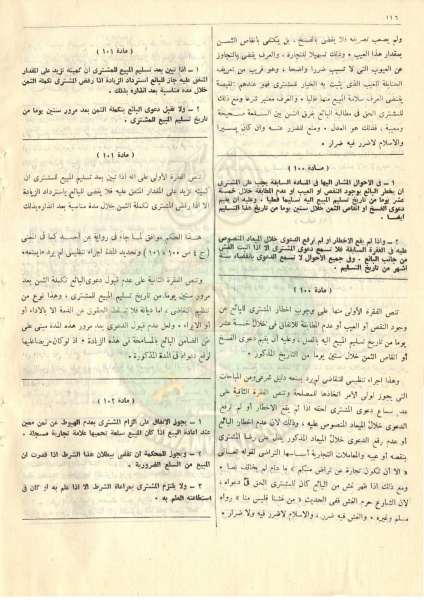 ١١٦
ولم يصعب تصريفه فلا يقضى بالفسخ ، بل يكتفى بانقاص الثمن
بمقدار هذا العيب ٠ وذلك تسهيلا للتجارة ٠ والعرف يقضى بالتجاوز
عن العيوب التى لا تسبب ضررا واضحا ، وهو قريب من تعريف
الحنابلة العيب الذى يثبت به الخيار للمشترى فهو عندهم : نقيصة
يقتضى العرف سلامة المبيع منها غالبا ٠ والعرف معتبر شرعا ومع ذلك
للمشترى الحق فى مطالبة البائع بفرق الثمن بين السلعة صحيحة
ومعيبة ، فذلك هو العدل ٠ ومنع للضرر عنه وان كان يسيرا
والاسلام لاضرر فيه ولا ضرار ٠
( مادة ١٠٠ )
١ ــ فى الاحوال المشار اليها فى المادة السابقة يجب على المشترى
ان يخطر البائع بوجود النقص او العيب او عدم المطابقة خلال خمسة
عشر يوما من تاريخ تسليم المبيع اليه تسليما فعليا ٠ وعليه ان يقيم
دعوى الفسخ او انقاص الثمن خلال ستين يوما من تاريخ هذا التسليم
ايضا ٠
٢ ــ واذا لم يقع الاخطار او لم ترفع الدعوى خلال الميعاد المنصوص
عليه فى الفقرة السابقة فلا تسمع الدعوى الا اذا اثبت المشترى الغش
من جانب البائع ٠ وفى جميع الاحوال لا تسمع الدعوى بانقضاء ستة
اشهر من تاريخ التسليم ٠
( مادة ١٠٠ )
تنص الفقرة الأولى منها على وجوب اخطار المشترى البائع عن
وجود النقص أو العيب أو عدم المطابقة للاتفاق فى خلال خمسة عشر
يوما من تاريخ تسليم المبيع اليه بالفعل ، وعليه أن يقيم دعوى الفسخ
أو انقاص الثمن خلال ستين يوما من التاريخ المذكور ٠
وهذا اجراء تنظيمى للتقاضى لم يرد بمنعه دليل شرعى ومن المباحات
التى يجوز لولى الأمر اتخاذها للمصلحة وتنص الفقرة الثانية على
عدم سماع دعوى المشترى لحقه اذا لم يقع الاخطار أو لم ترفع
الدعوى خلال الميعاد المنصوص عليه ، وذلك لأن عدم الاخطار
أو عدم رفع الدعوى خلال الميعاد المذكور يدل على رضا المشترى
بنقصه أو عيبه والمعاملات التجارية أساسها التراضى لقوله تعالى
« الا أن تكون تجارة عن تراض منكم » ما دام لم يخالف نصا ٠
ومع ذلك اذا ظهر غش من البائع كان للمشترى الحق فى دعواه ،
لان الشارع حرم الغش ففى الحديث « من غشنا فليس منا » رواه
مسلم وغيره ٠ والغش فيه ضرر ، والاسلام لاضرر فيه ولا ضرار ٠
( مادة ١٠١ )
١ ــ اذا تبين بعد تسليم المبيع للمشترى ان كميته تزيد على المقدار
المتفق عليه جاز للبائع استرداد الزيادة اذا رفض المشترى تكملة الثمن
خلال مدة مناسبة بعد انذاره بذلك ٠
٢ ــ ولا تقبل دعوى البائع بتكملة الثمن بعد مرور ستين يوما من
تاريخ تسليم المبيع للمشترى ٠
( مادة ١٠١ )
تنص الفقرة الأولى على انه اذا تبين بعد تسليم المبيع للمشترى ان
كميته تزيد على المقدار المتفق عليه فلا يقضى للبائع باسترداد الزيادة
الا اذا رفض المشترى تكملة الثمن خلال مدة مناسبة بعد انذاره بذلك
هذا الحكم موافق لما جاء فى رواية عن أحمد كما فى المغنى
( ج ٤ ص ١٠٠ ، ١٠١ ) وتحديد المدة اجراء تنظيمى لم يرد ما يمنعه ٠
وتنص الفقرة الثانية على عدم قبول دعوى البائع تكملة الثمن بعد
مرور ستين يوما من تاريخ تسليم المبيع للمشترى ، وهذا نوع من
تنظيم التقاضى ، اما ديانة فلا تسقط الحقوق عن الذمة الا بالاداء أو
أو الابراء ٠ ولعل عدم قبول الدعوى بعد مرور هذه المدة مبنى على
عن الضامن البائع بالمسامحة فى هذه الزيادة « اذ لو كان حريصا عليها
لرفع دعواه فى المدة المذكورة ٠
( مادة ١٠٢ )
١ ــ يجوز الاتفاق على الزام المشترى بعدم الهبوط عن ثمن معين
عند اعادة البيع اذا كان المبيع سلعة تحميها علامة تجارية مسجلة ٠
٢ ــ ويجوز للمحكمة ان تقضى ببطلان هذا الشرط اذا قدرت ان
المبيع من السلع الضرورية ٠
٣ ــ ولا يلتزم المشترى بمراعاة الشرط الا اذا علم به او كان فى
استطاعته العلم به ٠